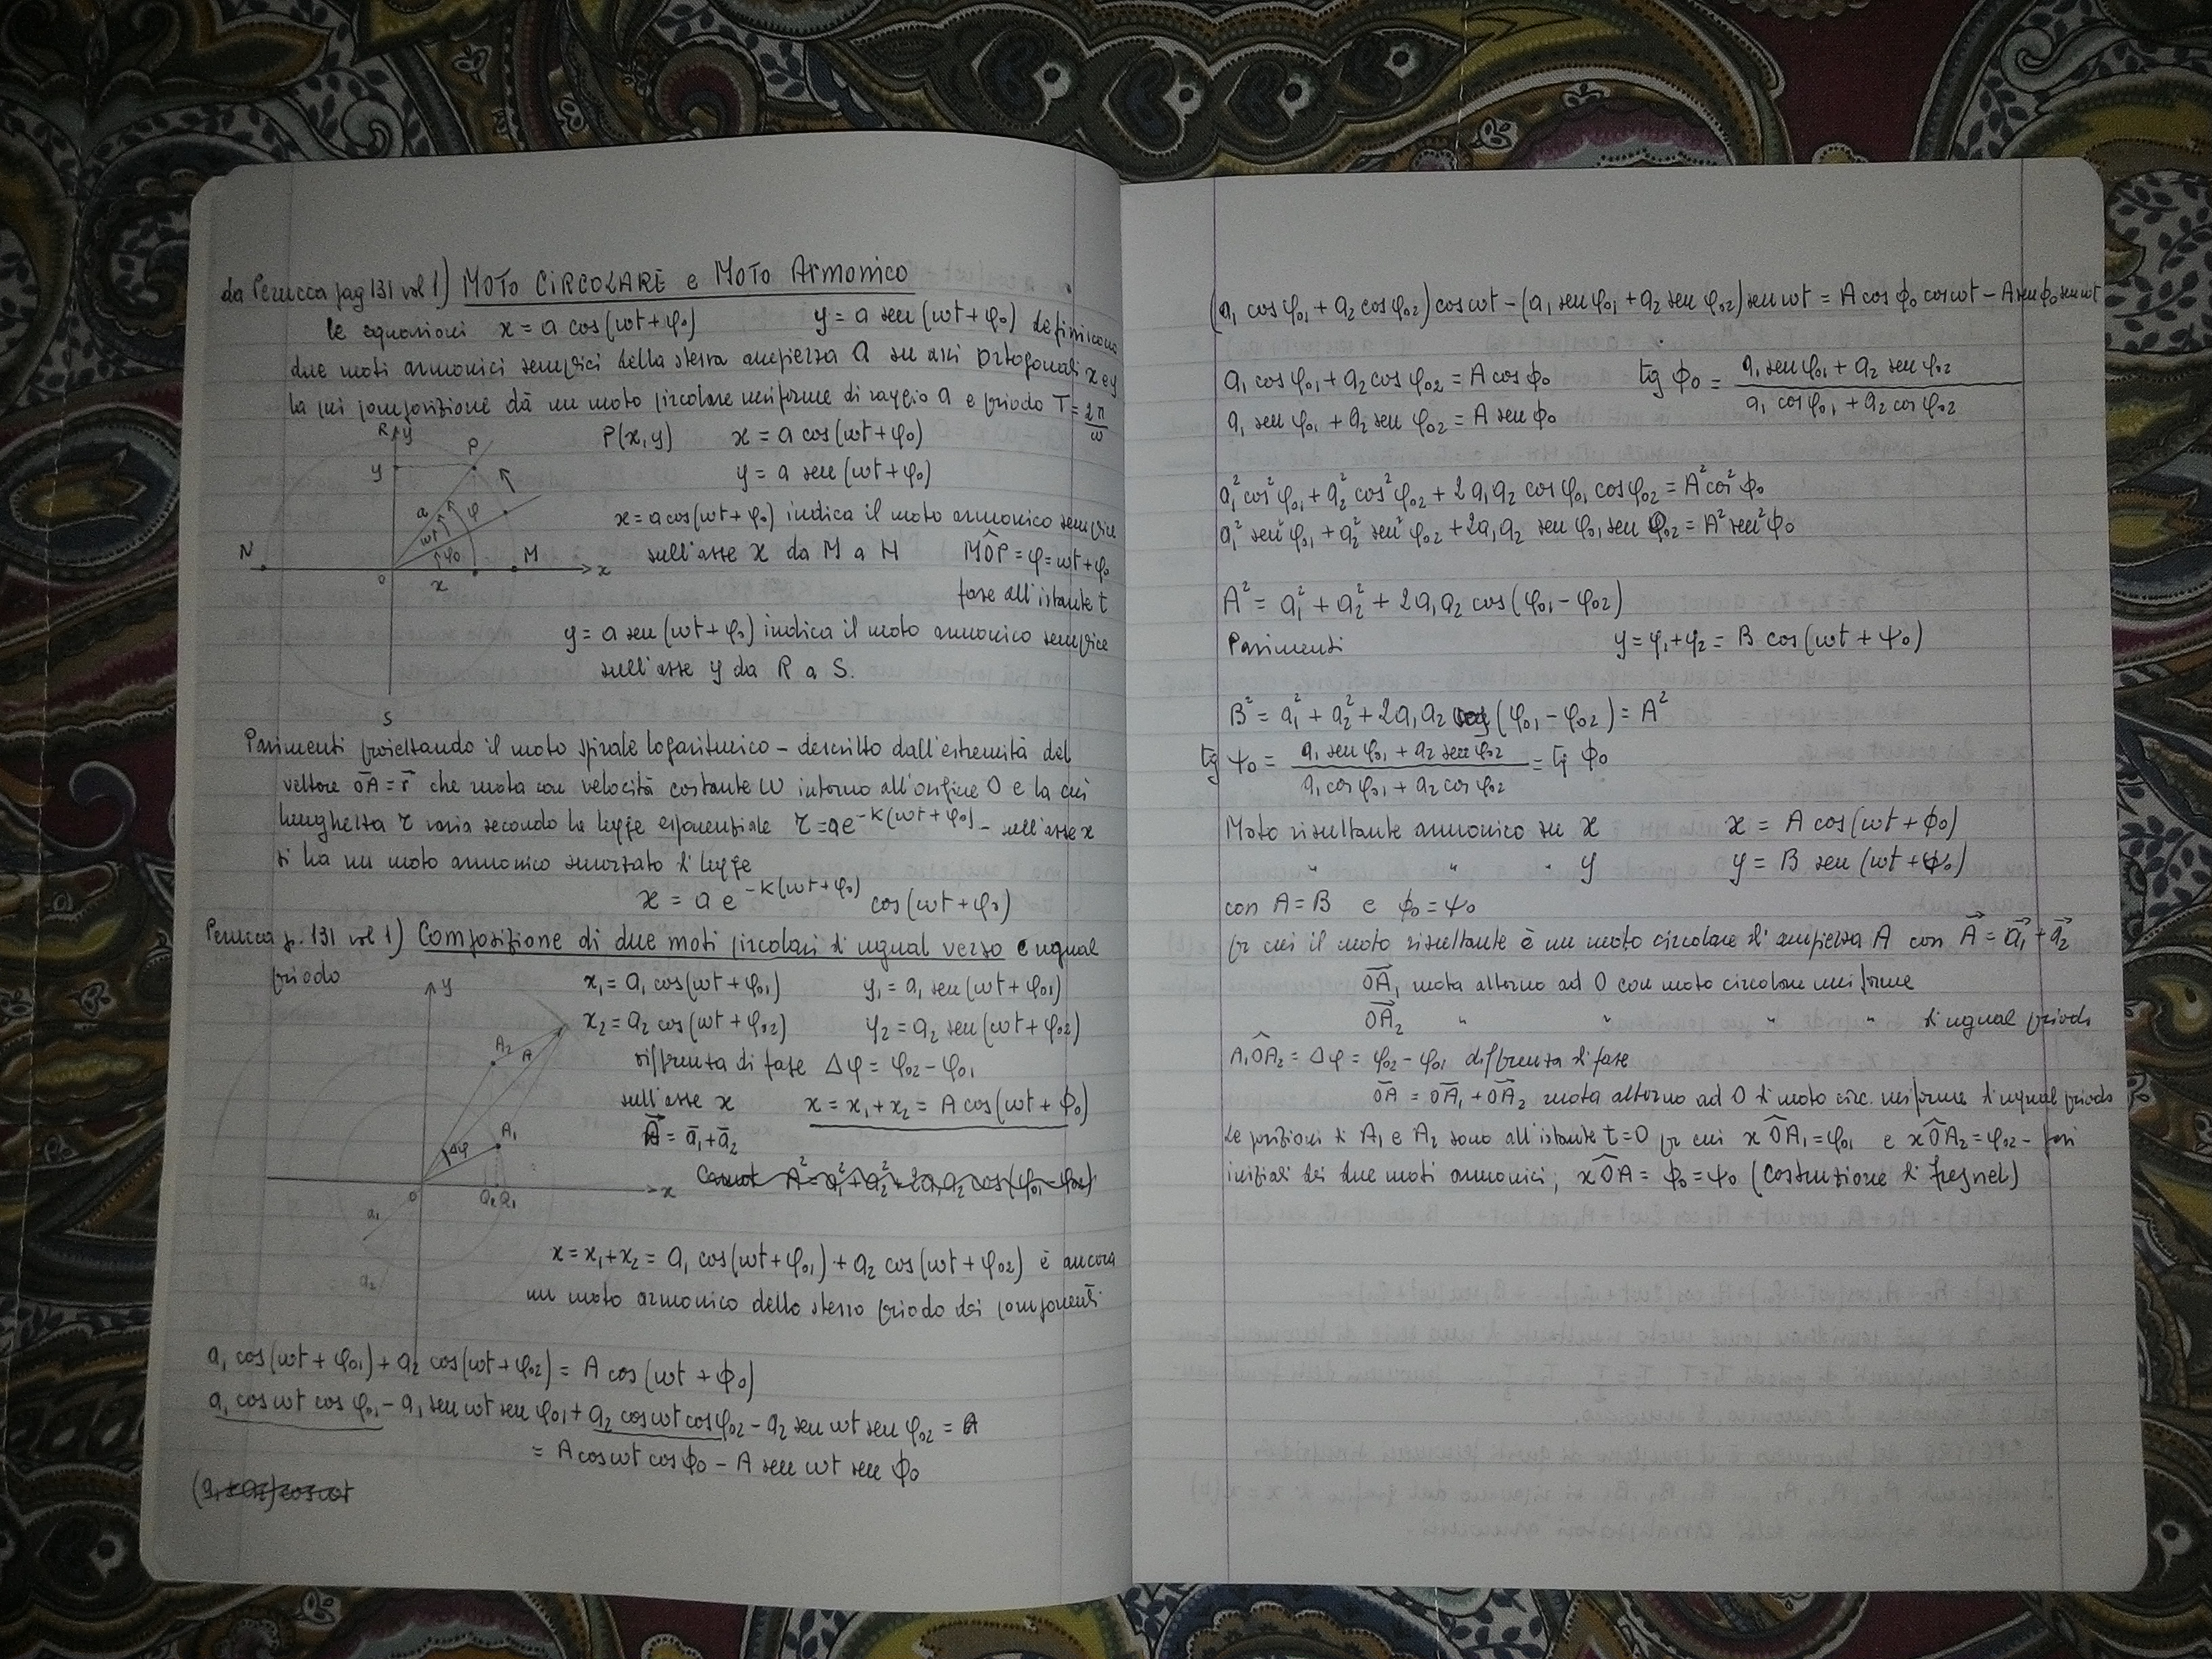 da Perucca pag 131 vol 1) MOTO CIRCOLARE e MOTO Armonico
le equazioni x = a cos(ωt+φ₀) y = a sen (ωt+φ₀) definiscono
due moti armonici semplici della stessa ampiezza a su assi ortogonali x e y
la cui composizione dà un moto circolare uniforme di raggio a e periodo T = 2π/ω
P(x,y) x = a cos(ωt+φ₀)
y = a sen(ωt+φ₀)
x = a cos(ωt+φ₀) indica il moto armonico semplice
sull'asse x da M a N MÔP = φ = ωt+φ₀
fase all'istante t
y = a sen(ωt+φ₀) indica il moto armonico semplice
sull'asse y da R a S.
R y
y P
a φ
ωt
N φ₀ M
O x x
S
Parimenti proiettando il moto spirale logaritmico – descritto dall'estremità del
vettore OA = r che ruota con velocità costante ω intorno all'origine O e la cui
lunghezza r varia secondo la legge esponenziale r = ae^-K(ωt+φ₀) – sull'asse x
si ha un moto armonico smorzato di legge
x = a e^-K(ωt+φ₀) cos(ωt+φ₀)
Perucca p. 131 vol 1) Composizione di due moti circolari di ugual verso e ugual
periodo
x₁ = a₁ cos(ωt+φ₀₁) y₁ = a₁ sen(ωt+φ₀₁)
x₂ = a₂ cos(ωt+φ₀₂) y₂ = a₂ sen(ωt+φ₀₂)
differenza di fase Δφ = φ₀₂ – φ₀₁
sull'asse x x = x₁+x₂ = A cos(ωt+ϕ₀)
A = a₁+a₂
Carnot A² = a₁²+a₂²+2a₁a₂ cos(φ₀₁–φ₀₂)
y
A₂ A
A₁
Δφ
O x
a₁
a₂
x = x₁+x₂ = a₁ cos(ωt+φ₀₁) + a₂ cos(ωt+φ₀₂) è ancora
un moto armonico dello stesso periodo dei componenti
a₁ cos(ωt+φ₀₁) + a₂ cos(ωt+φ₀₂) = A cos(ωt+ϕ₀)
a₁ cosωt cos φ₀₁ – a₁ sen ωt sen φ₀₁ + a₂ cosωt cosφ₀₂ – a₂ sen ωt sen φ₀₂ = A
= A cosωt cos ϕ₀ – A sen ωt sen ϕ₀
(a₁+a₂) cosωt
(a₁ cos φ₀₁ + a₂ cos φ₀₂) cosωt – (a₁ sen φ₀₁ + a₂ sen φ₀₂) sen ωt = A cos ϕ₀ cosωt – A sen ϕ₀ sen ωt
a₁ cos φ₀₁ + a₂ cos φ₀₂ = A cos ϕ₀ tg ϕ₀ = (a₁ sen φ₀₁ + a₂ sen φ₀₂)/(a₁ cos φ₀₁ + a₂ cos φ₀₂)
a₁ sen φ₀₁ + a₂ sen φ₀₂ = A sen ϕ₀
a₁² cos² φ₀₁ + a₂² cos² φ₀₂ + 2a₁a₂ cos φ₀₁ cos φ₀₂ = A² cos² ϕ₀
a₁² sen² φ₀₁ + a₂² sen² φ₀₂ + 2a₁a₂ sen φ₀₁ sen φ₀₂ = A² sen² ϕ₀
A² = a₁² + a₂² + 2a₁a₂ cos(φ₀₁ – φ₀₂)
Parimenti y = y₁+y₂ = B cos(ωt+ψ₀)
B² = a₁² + a₂² + 2a₁a₂ cos(φ₀₁ – φ₀₂) = A²
tg ψ₀ = (a₁ sen φ₀₁ + a₂ sen φ₀₂)/(a₁ cos φ₀₁ + a₂ cos φ₀₂) = tg ϕ₀
Moto risultante armonico su x x = A cos(ωt+ϕ₀)
" " " y y = B sen(ωt+ψ₀)
con A = B e ϕ₀ = ψ₀
per cui il moto risultante è un moto circolare di ampiezza A con A = a₁ + a₂
OA₁ ruota attorno ad O con moto circolare uniforme
OA₂ " " " " di ugual periodo
A₁ÔA₂ = Δφ = φ₀₂ – φ₀₁ differenza di fase
OA = OA₁ + OA₂ ruota attorno ad O di moto circ. uniforme di ugual periodo
Le posizioni di A₁ e A₂ sono all'istante t=0 per cui xÔA₁ = φ₀₁ e xÔA₂ = φ₀₂ – fasi
iniziali dei due moti armonici; xÔA = ϕ₀ = ψ₀ (Costruzione di Fresnel)